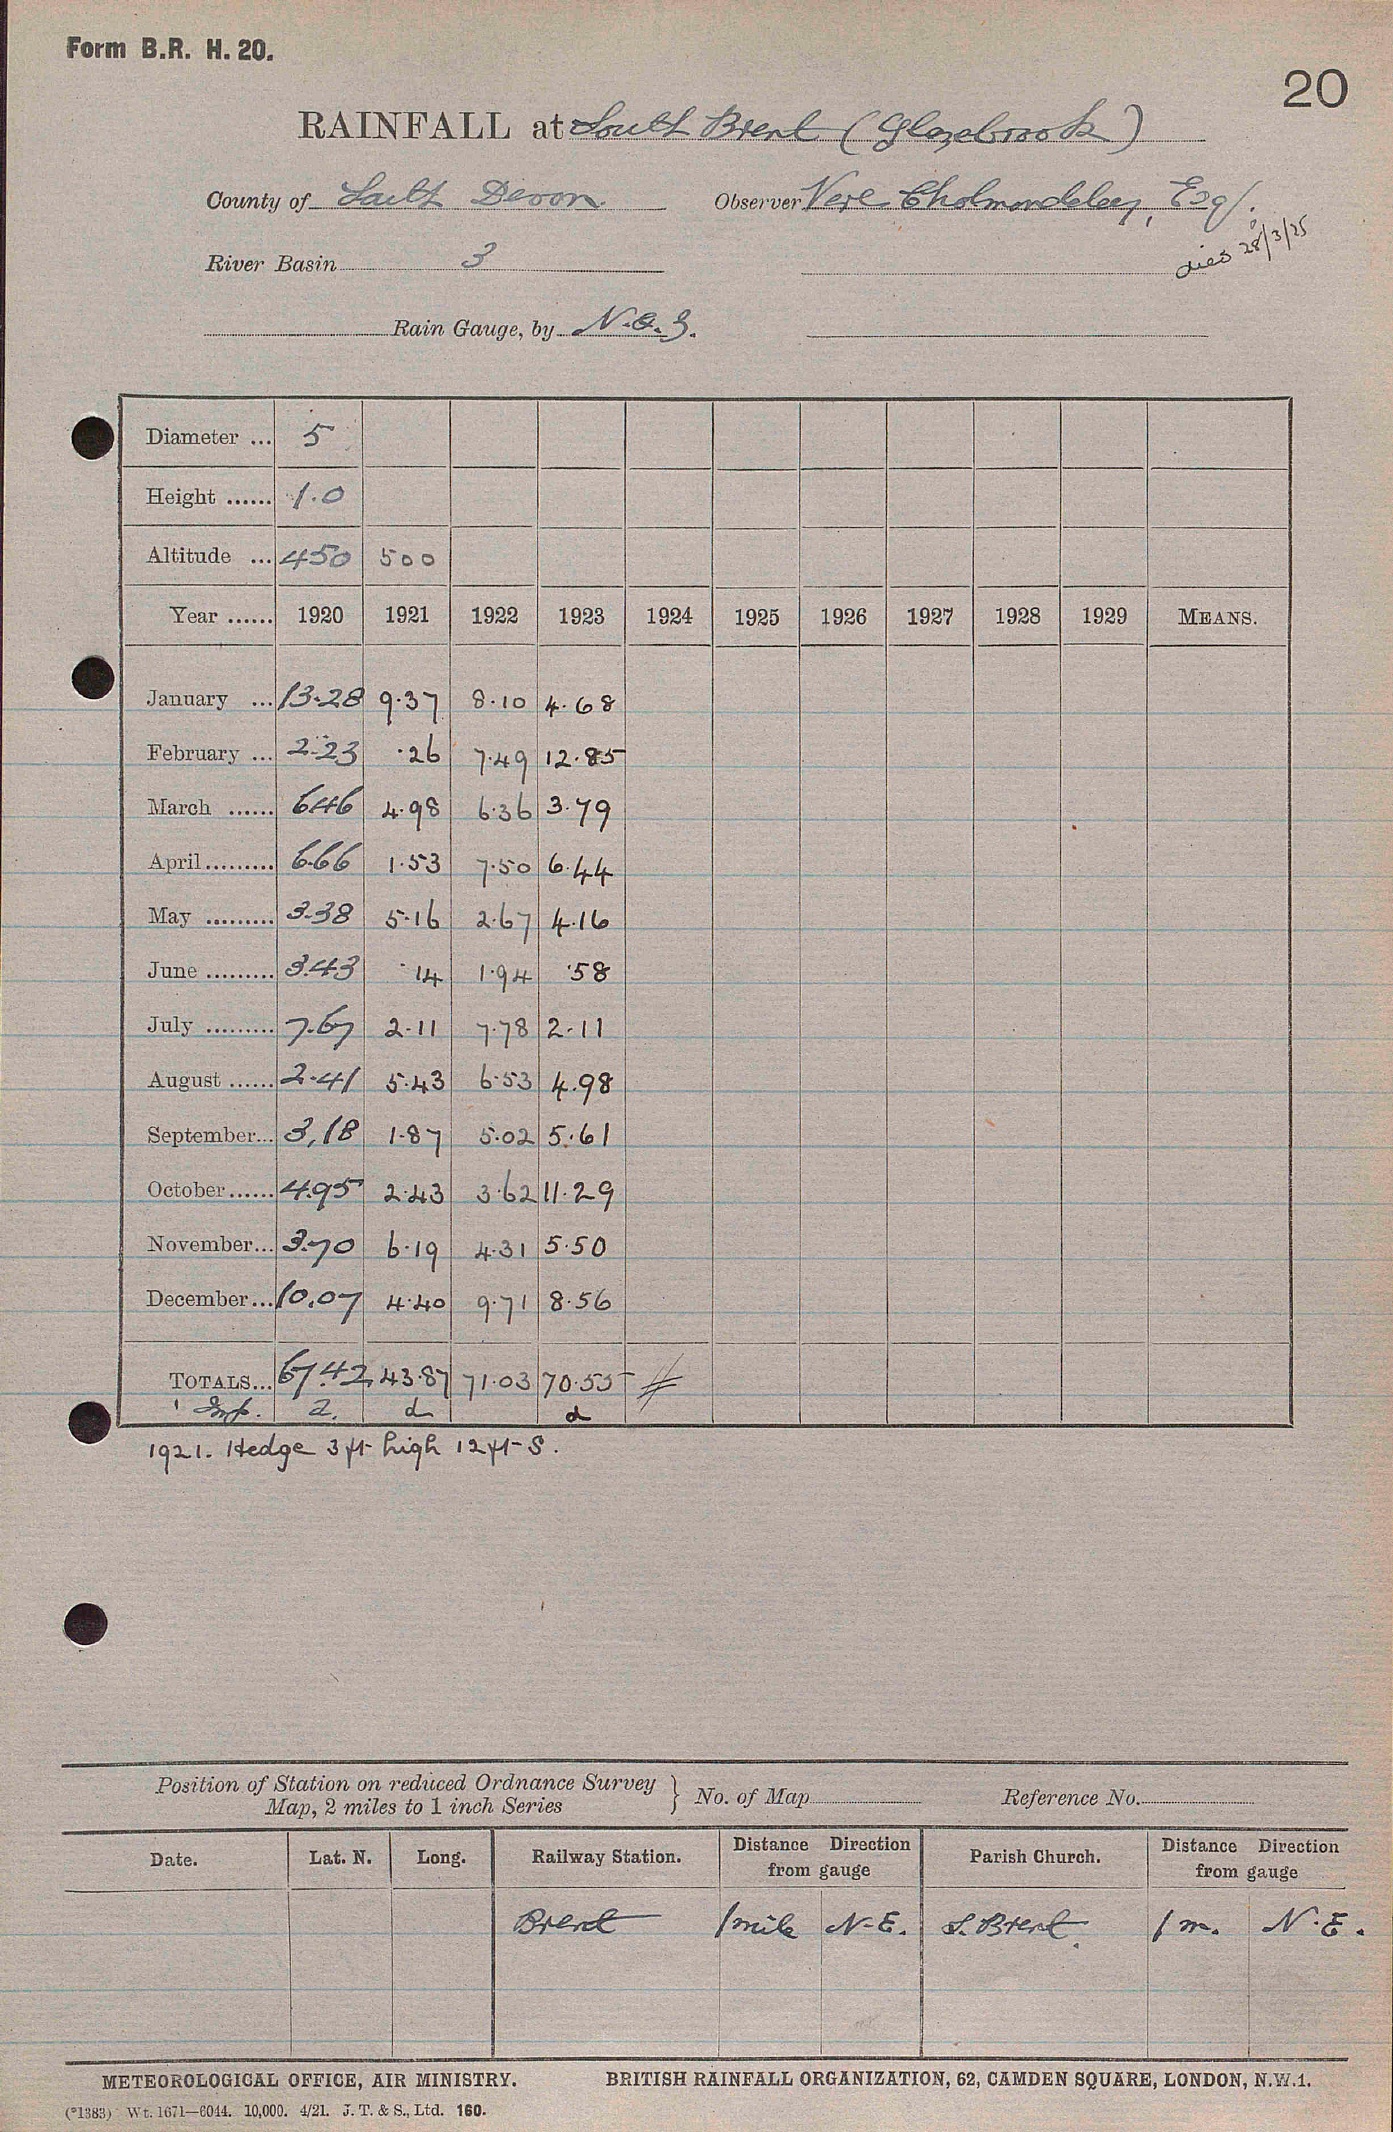 Form B.R. H. 20.
20
RAINFALL at South Brent (Glazebrook)
County of South Devon Observer Vere Cholmondeley, Esq.
died 28/3/25
River Basin 3
Rain Gauge, by N. & Z.
Diameter ... 5
Height ...... 1.0
Altitude ... 450 500
Year ...... 1920 1921 1922 1923 1924 1925 1926 1927 1928 1929 MEANS.
January ... 13.28 9.37 8.10 4.68
February ... 2.23 .26 7.49 12.85
March ...... 6.46 4.98 6.36 3.79
April......... 6.66 1.53 7.50 6.44
May ......... 3.38 5.16 2.67 4.16
June ......... 3.43 .14 1.94 .58
July ......... 7.67 2.11 7.78 2.11
August ...... 2.41 5.43 6.53 4.98
September... 3,18 1.87 5.02 5.61
October...... 4.95 2.43 3.62 11.29
November... 3.70 6.19 4.31 5.50
December... 10.07 4.40 9.71 8.56
TOTALS... 67.42 43.87 71.03 70.55
d d
1921. Hedge 3 ft high 12 ft S.
Position of Station on reduced Ordnance Survey
Map, 2 miles to 1 inch Series } No. of Map Reference No.
Date. Lat. N. Long. Railway Station. Distance Direction from gauge Parish Church. Distance Direction from gauge
Brent 1 mile N-E. S. Brent 1 m. N.E.
METEOROLOGICAL OFFICE, AIR MINISTRY. BRITISH RAINFALL ORGANIZATION, 62, CAMDEN SQUARE, LONDON, N.W.1.
(*1383) Wt. 1671—6044. 10,000. 4/21. J. T. & S., Ltd. 160.